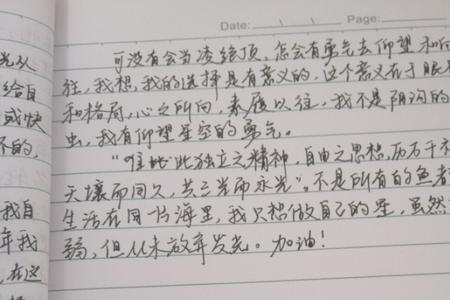 Date: Page:
可没有会当凌绝顶，怎会有勇气去仰望和向
往，我想，我的选择是有意义的，这个意义在于眼界
和格局，心之所向，素履以往，我不是阴沟的
虫，我有仰望星空的勇气。
“惟此独立之精神，自由之思想，历万千祀
天壤而同久，共三光而永光”。不是所有的鱼都
生活在同一片海里，我只想做自己的星，虽然
弱，但从未放弃发光。加油！
光从
给自
或快
不的，
我自
年我
，在这